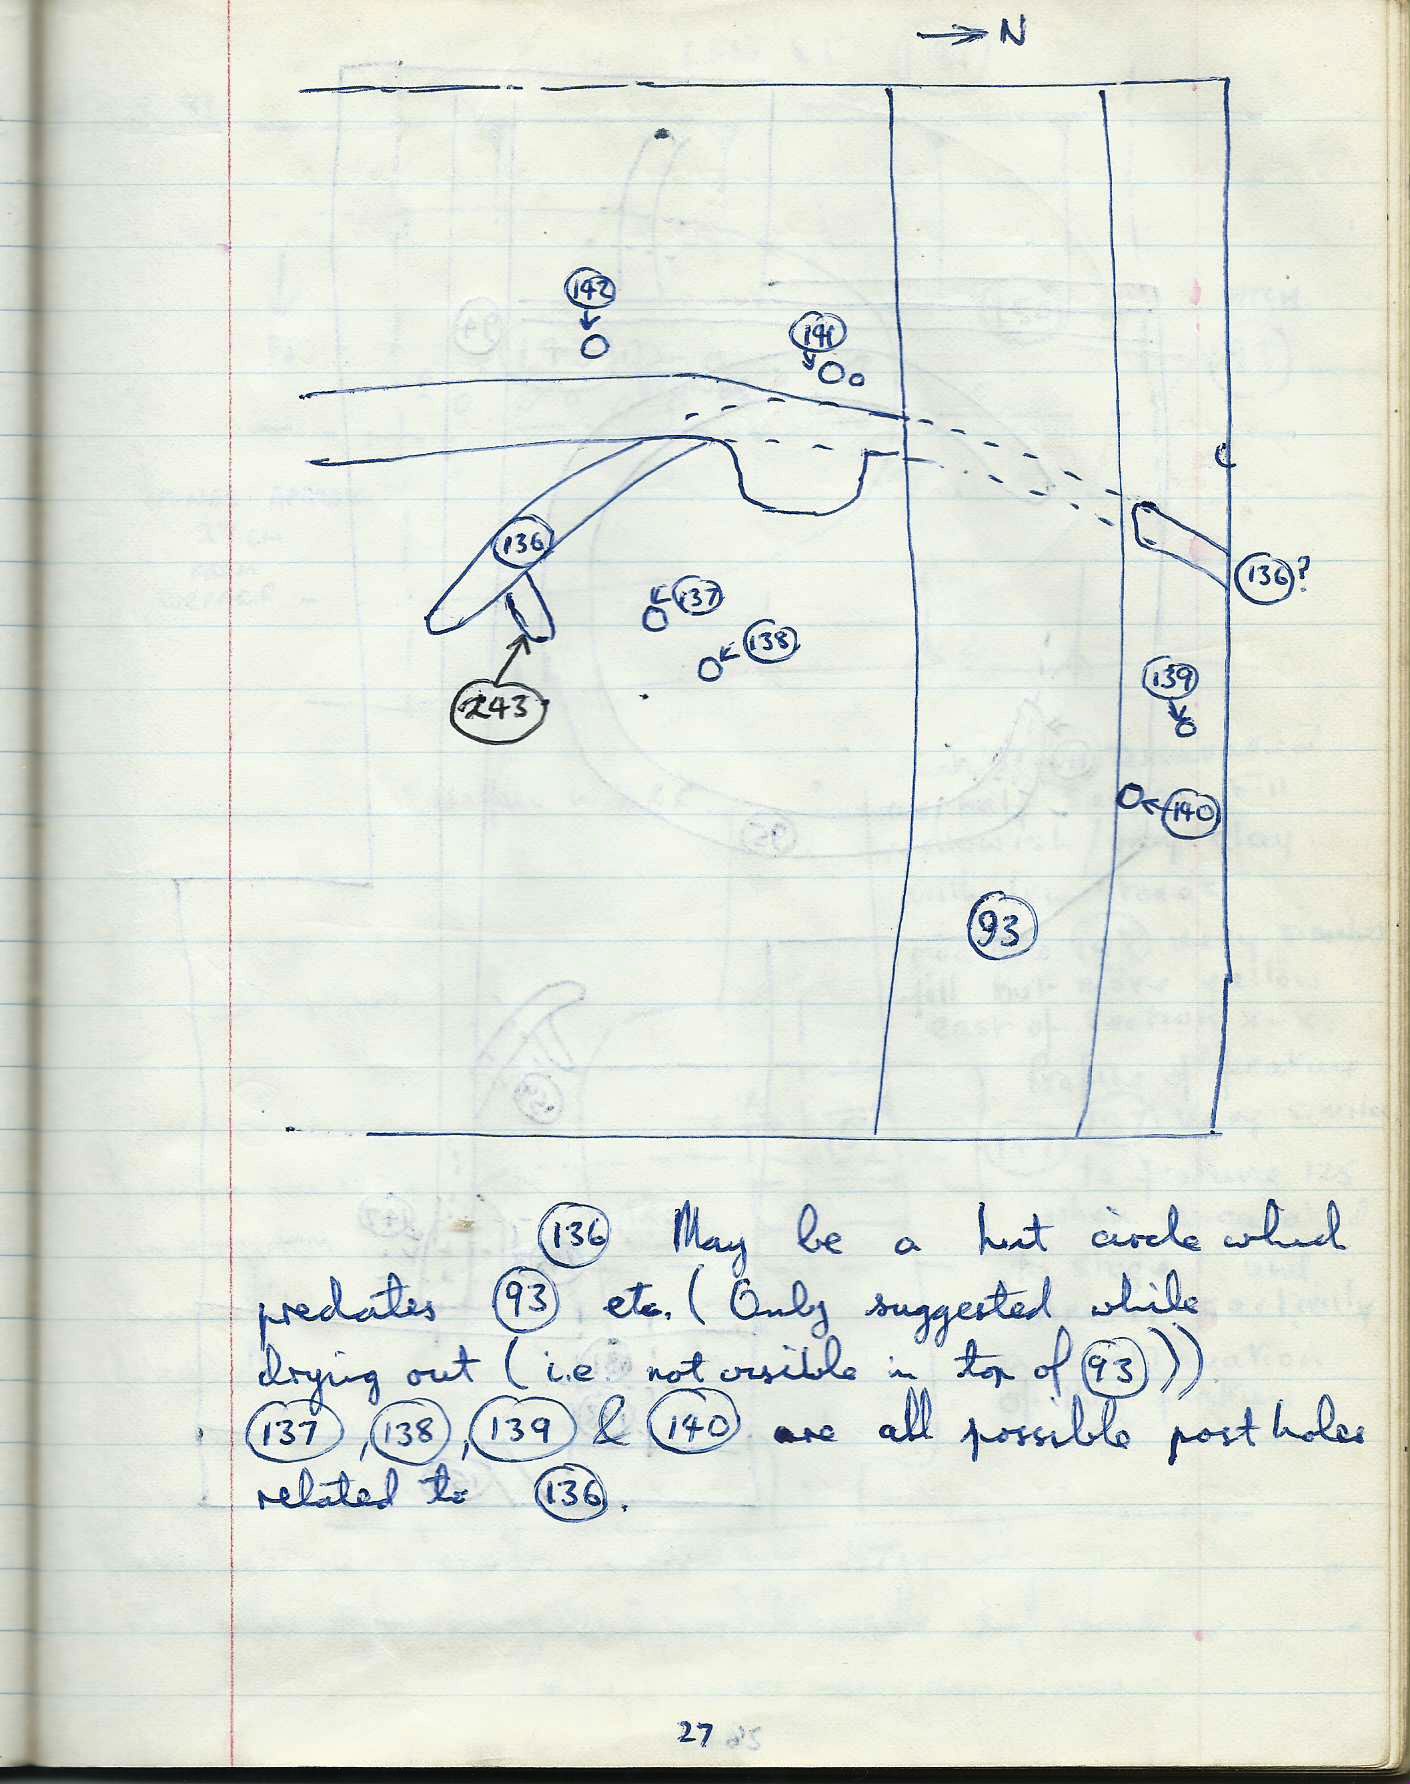 → N
142
141
136
137
138
243
136?
139
140
93
136 May be a hut circle which
predates 93 etc. (Only suggested while
drying out (i.e. not visible in top of 93))
137, 138, 139 & 140 are all possible post holes
related to 136.
27